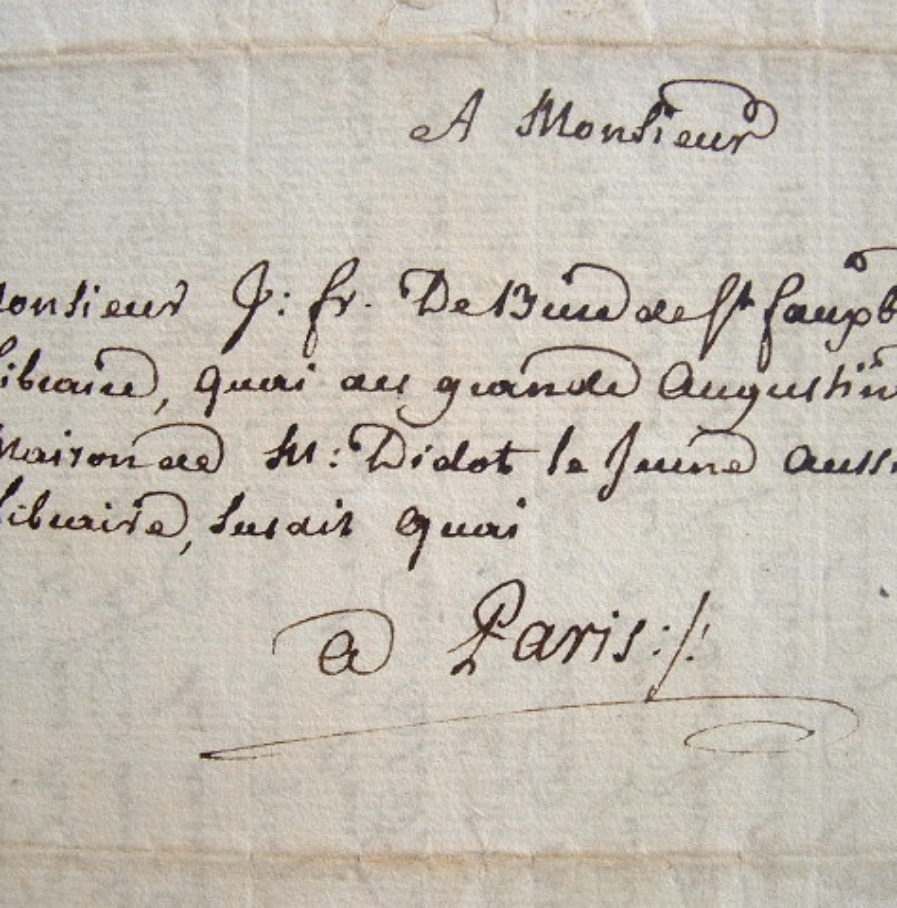 A Monsieur
Monsieur J: fr. De Bure de St fauxb
Libraire, quai des grande Augustins
Maison de M: Didot le Jeune aussi
Libraire, susdit quai
a Paris :/: